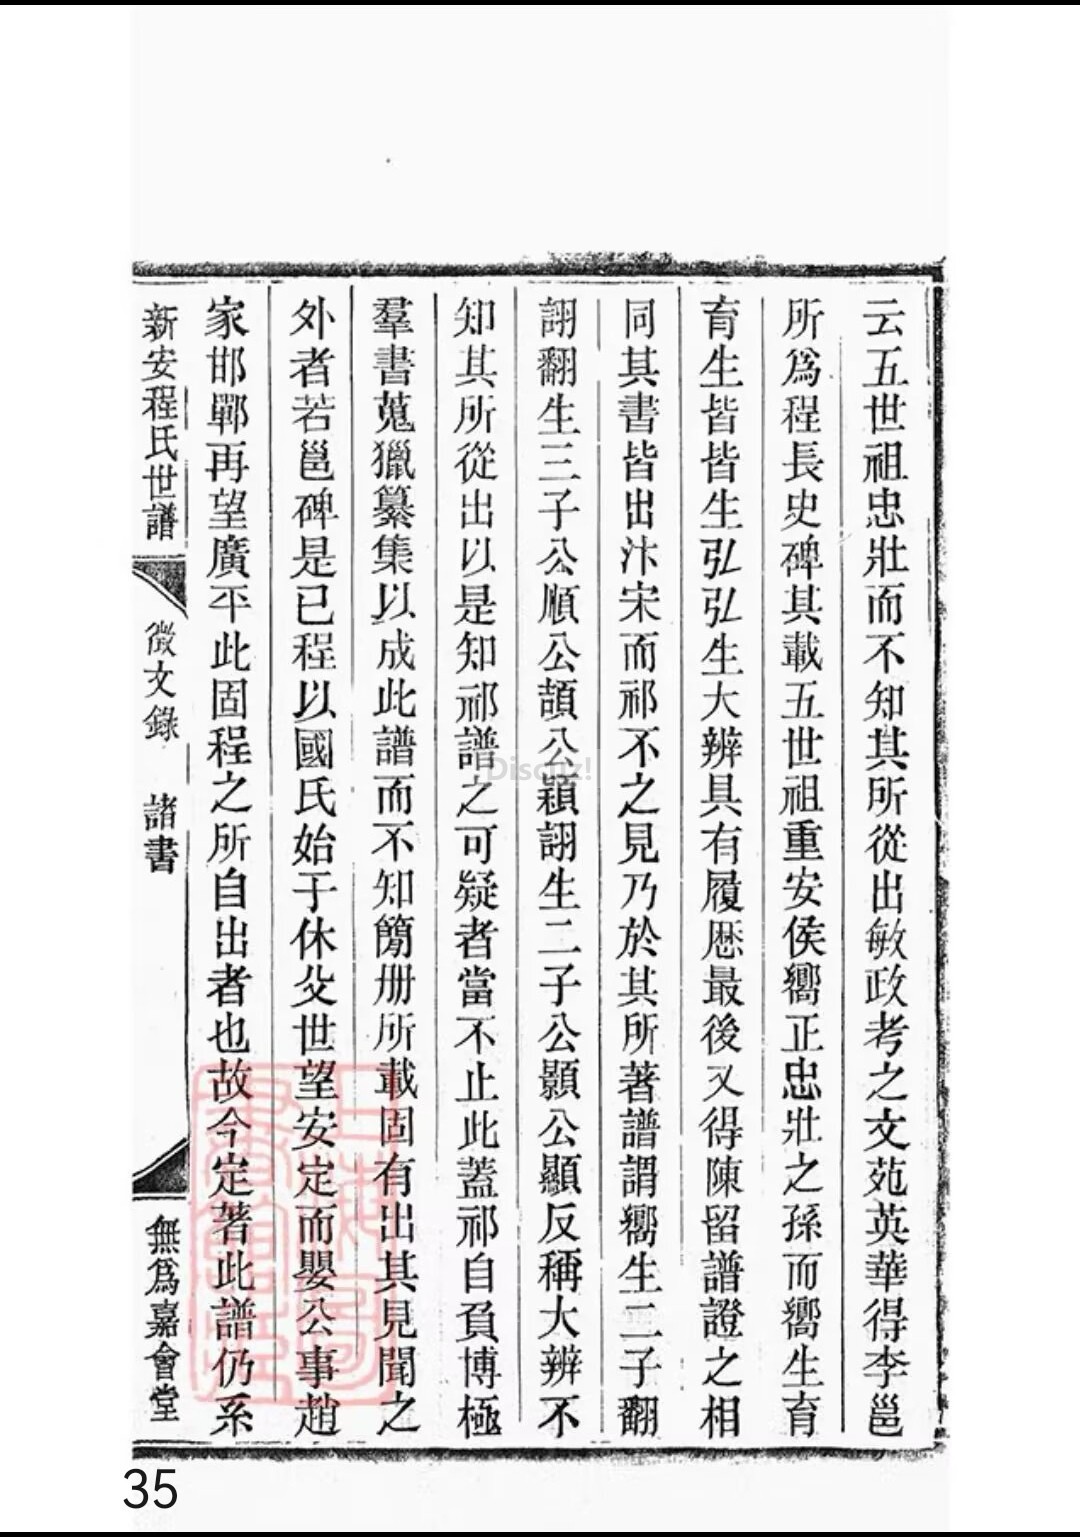 云五世祖忠壯而不知其所從出敏政考之文苑英華得李邕
所爲程長史碑其載五世祖重安侯嚮正忠壯之孫而嚮生育
育生皆皆生弘弘生大辨具有履歷最後又得陳留譜證之相
同其書皆出汴宋而祁不之見乃於其所著譜謂嚮生二子翻
詡翻生三子公順公頡公穎詡生二子公顥公顯反稱大辨不
知其所從出以是知祁譜之可疑者當不止此蓋祁自負博極
羣書蒐獵纂集以成此譜而不知簡册所載固有出其見聞之
外者若邕碑是已程以國氏始于休父世望安定而嬰公事趙
家邯鄲再望廣平此固程之所自出者也故今定著此譜仍系
新安程氏世譜 徵文錄 諸書 無爲嘉會堂
Discuz!
35